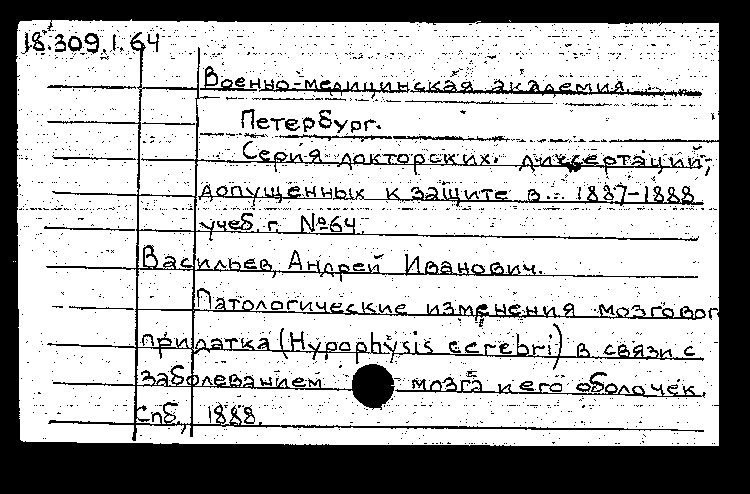 18.309.1.64
Военно-медицинская академия.
Петербург.
Серия докторских диссертаций,
допущенных к защите в... 1887-1888
учеб. г. №64.
Васильев, Андрей Иванович.
Патологические изменения мозговог
придатка (Hypophysis cerebri) в связи с
заболеванием мозга и его оболочек.
Спб., 1888.